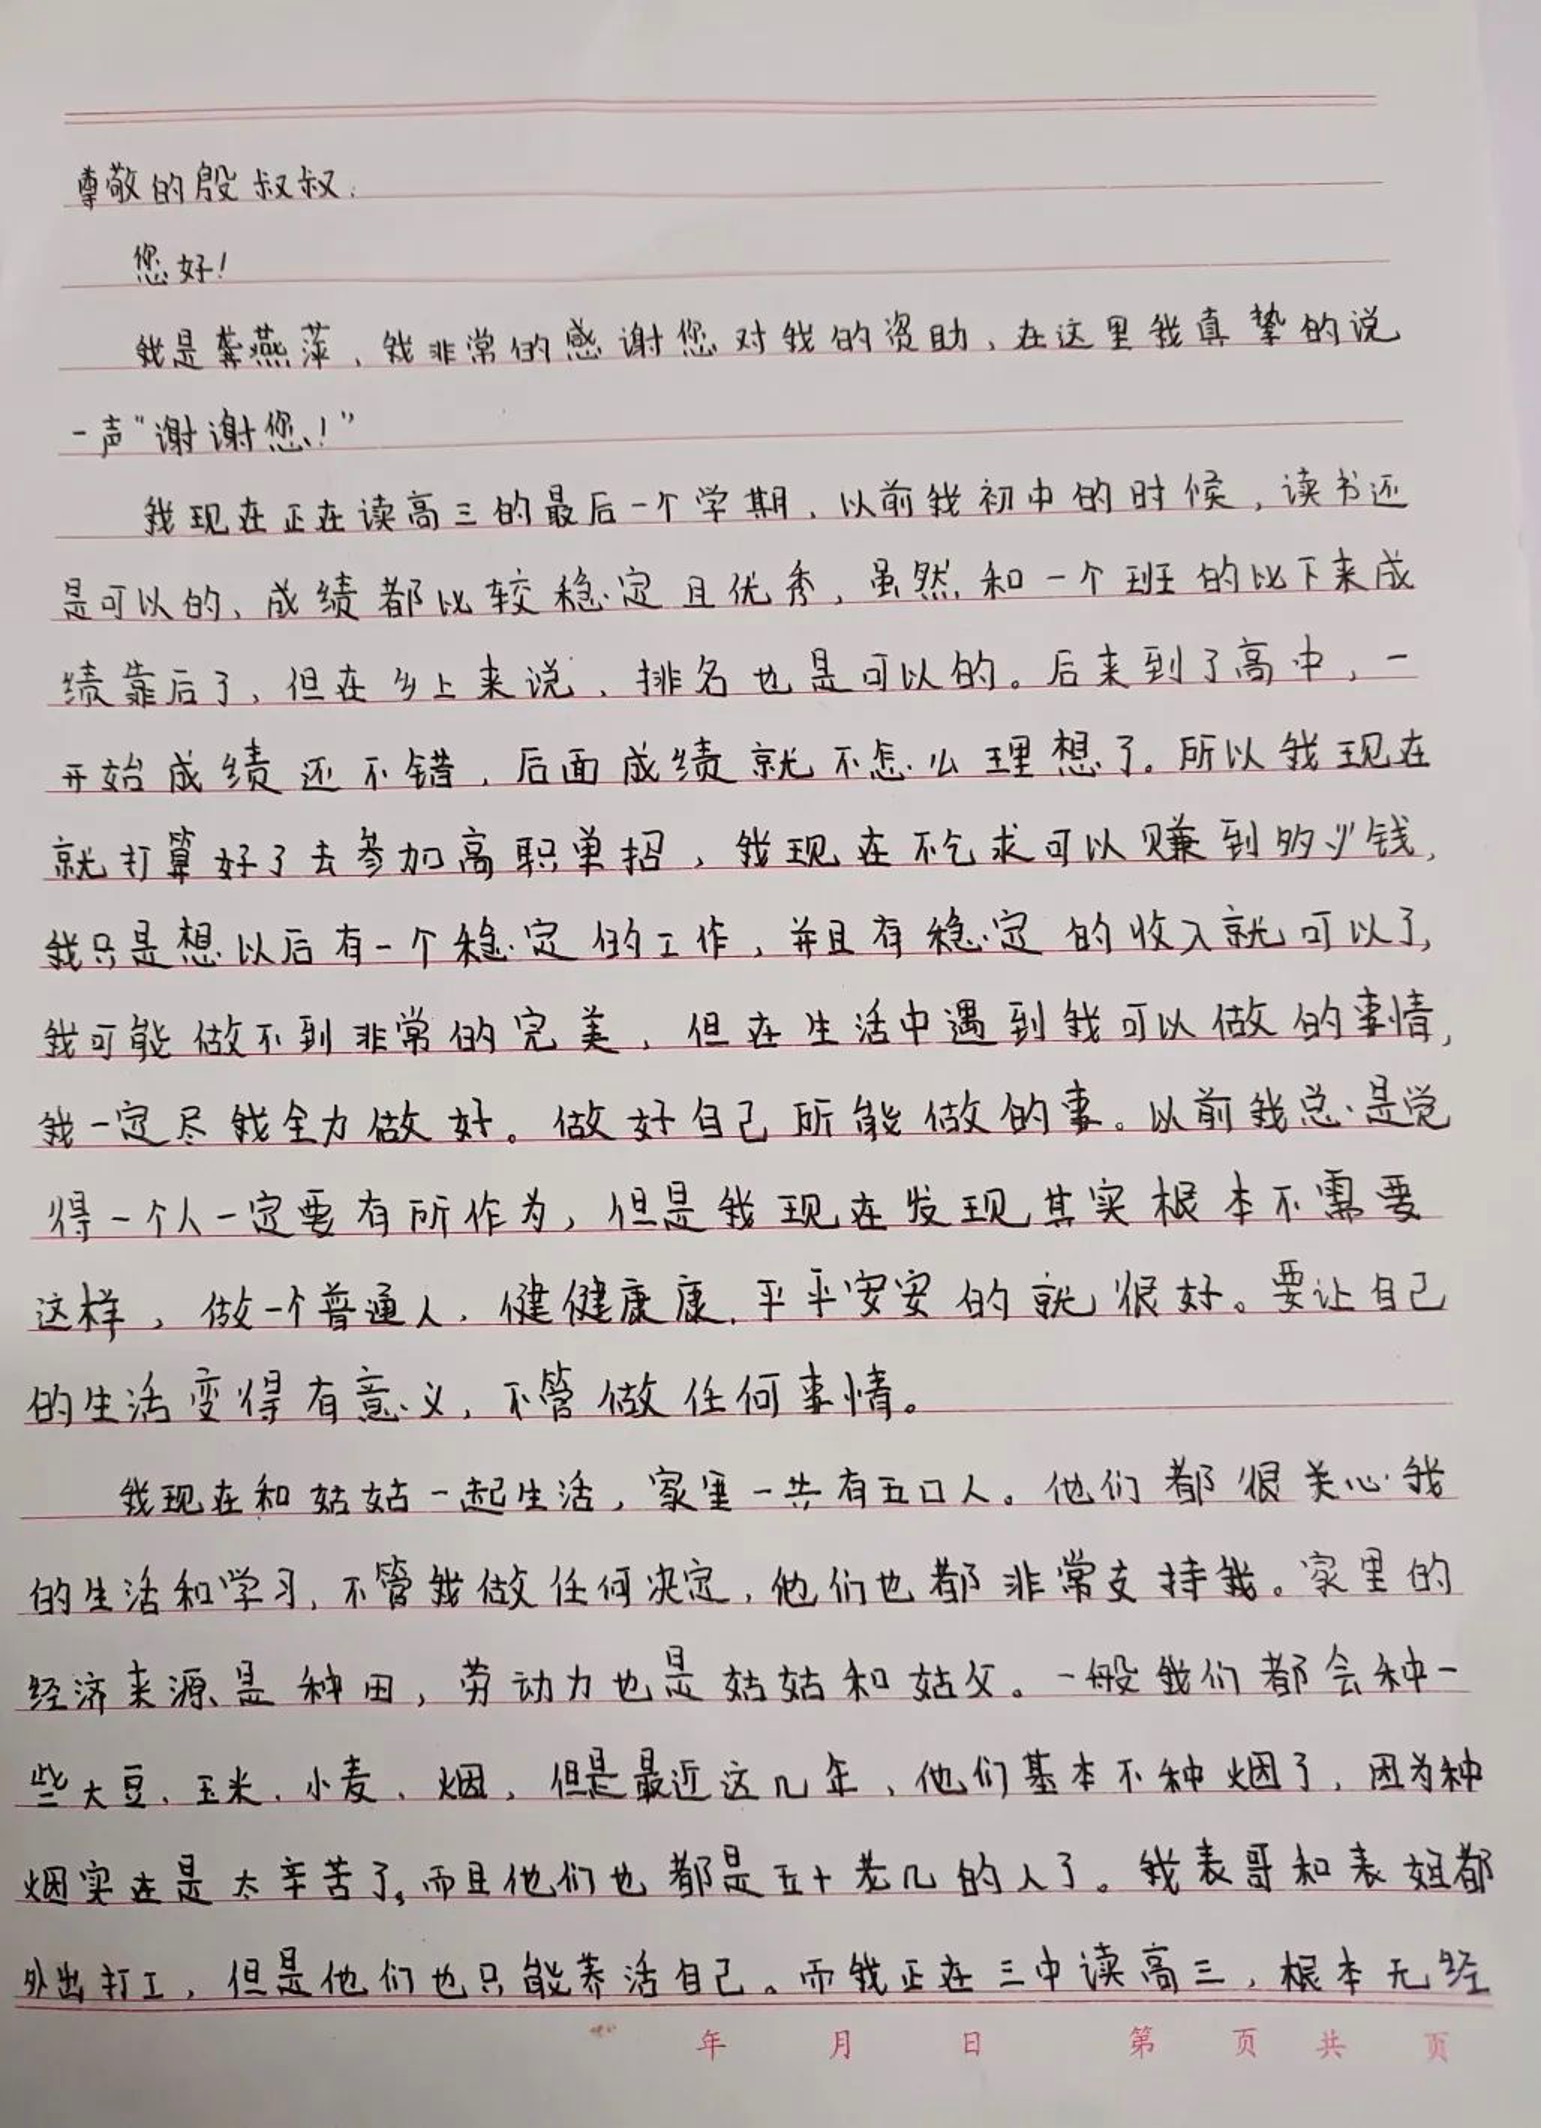 尊敬的殷叔叔:
您好!
我是龚燕萍，我非常的感谢您对我的资助，在这里我真挚的说
一声"谢谢您！"
我现在正在读高三的最后一个学期，以前我初中的时候，读书还
是可以的，成绩都比较稳定且优秀，虽然和一个班的比下来成
绩靠后了，但在乡上来说，排名也是可以的。后来到了高中，一
开始成绩还不错，后面成绩就不怎么理想了。所以我现在
就打算好了去参加高职单招，我现在不乞求可以赚到多少钱，
我只是想以后有一个稳定的工作，并且有稳定的收入就可以了，
我可能做不到非常的完美，但在生活中遇到我可以做的事情，
我一定尽我全力做好。做好自己所能做的事。以前我总是觉
得一个人一定要有所作为，但是我现在发现其实根本不需要
这样，做一个普通人，健健康康，平平安安的就很好。要让自己
的生活变得有意义，不管做任何事情。
我现在和姑姑一起生活，家里一共有五口人。他们都很关心我
的生活和学习，不管我做任何决定，他们也都非常支持我。家里的
经济来源是种田，劳动力也是姑姑和姑父。一般我们都会种一
些大豆、玉米、小麦、烟，但是最近这几年，他们基本不种烟了，因为种
烟实在是太辛苦了，而且他们也都是五十老几的人了。我表哥和表姐都
外出打工，但是他们也只能养活自己。而我正在三中读高三，根本无经
年 月 日 第 页 共 页